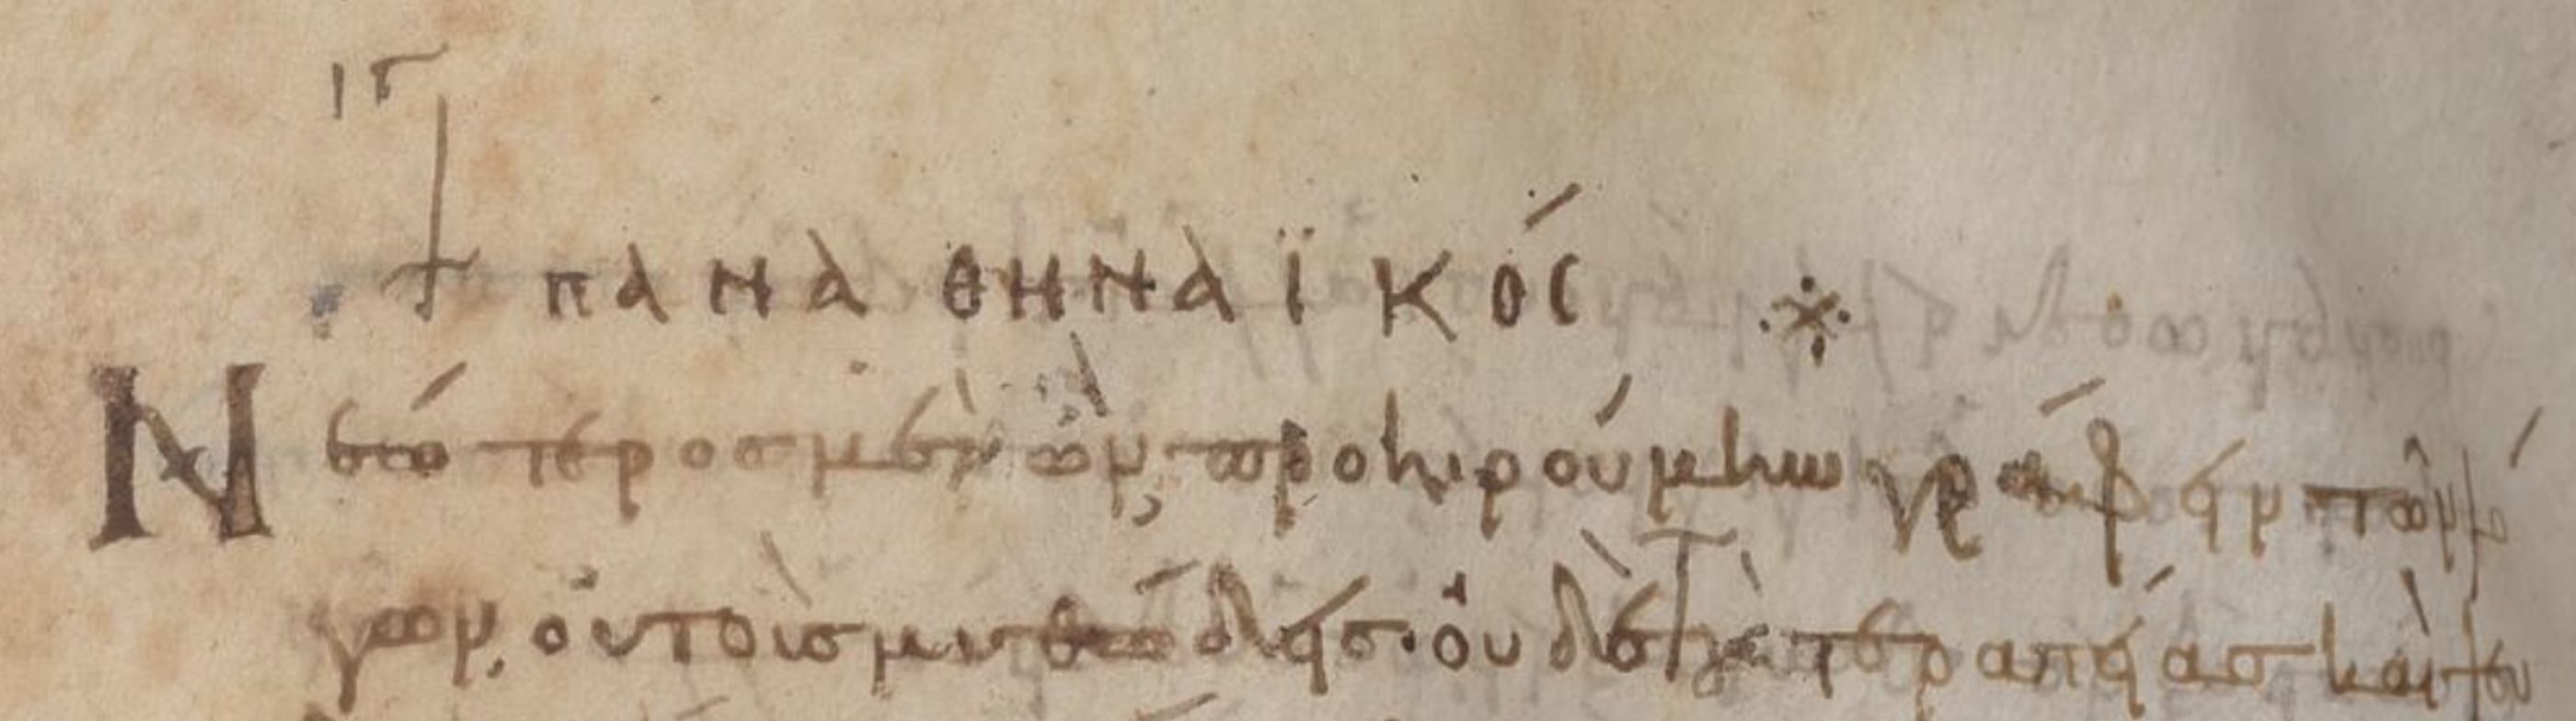 ιγ
† ΠΑΝΑΘΗΝΑΪΚΟΣ
Νεώτερος μὲν ὢν, προηιρούμην γράφειν τῶν λό
γων, οὐ τοὺς μυθώδεις· οὐδὲ τερατείας καὶ ψευ